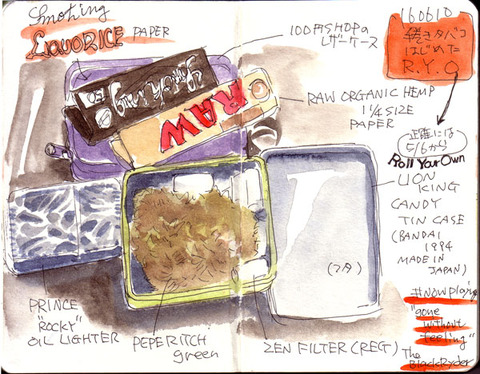 Smoking
LIQUORICE PAPER
100円SHOPの
レザーケース
160610
巻きタバコ
はじめた
R.Y.O
正確には
5/6から
Roll Your Own
Smoking
RAW
RAW ORGANIC HEMP
1 1/4 SIZE
PAPER
LION
KING
CANDY
TIN CASE
(BANDAI
1994
MADE IN
JAPAN)
(フタ)
PRINCE
"ROCKY"
OIL LIGHTER
PEPERITCH
green
ZEN FILTER (REG)
#NOWPlaying
"gone
without
feeling"
The
BlackRyder